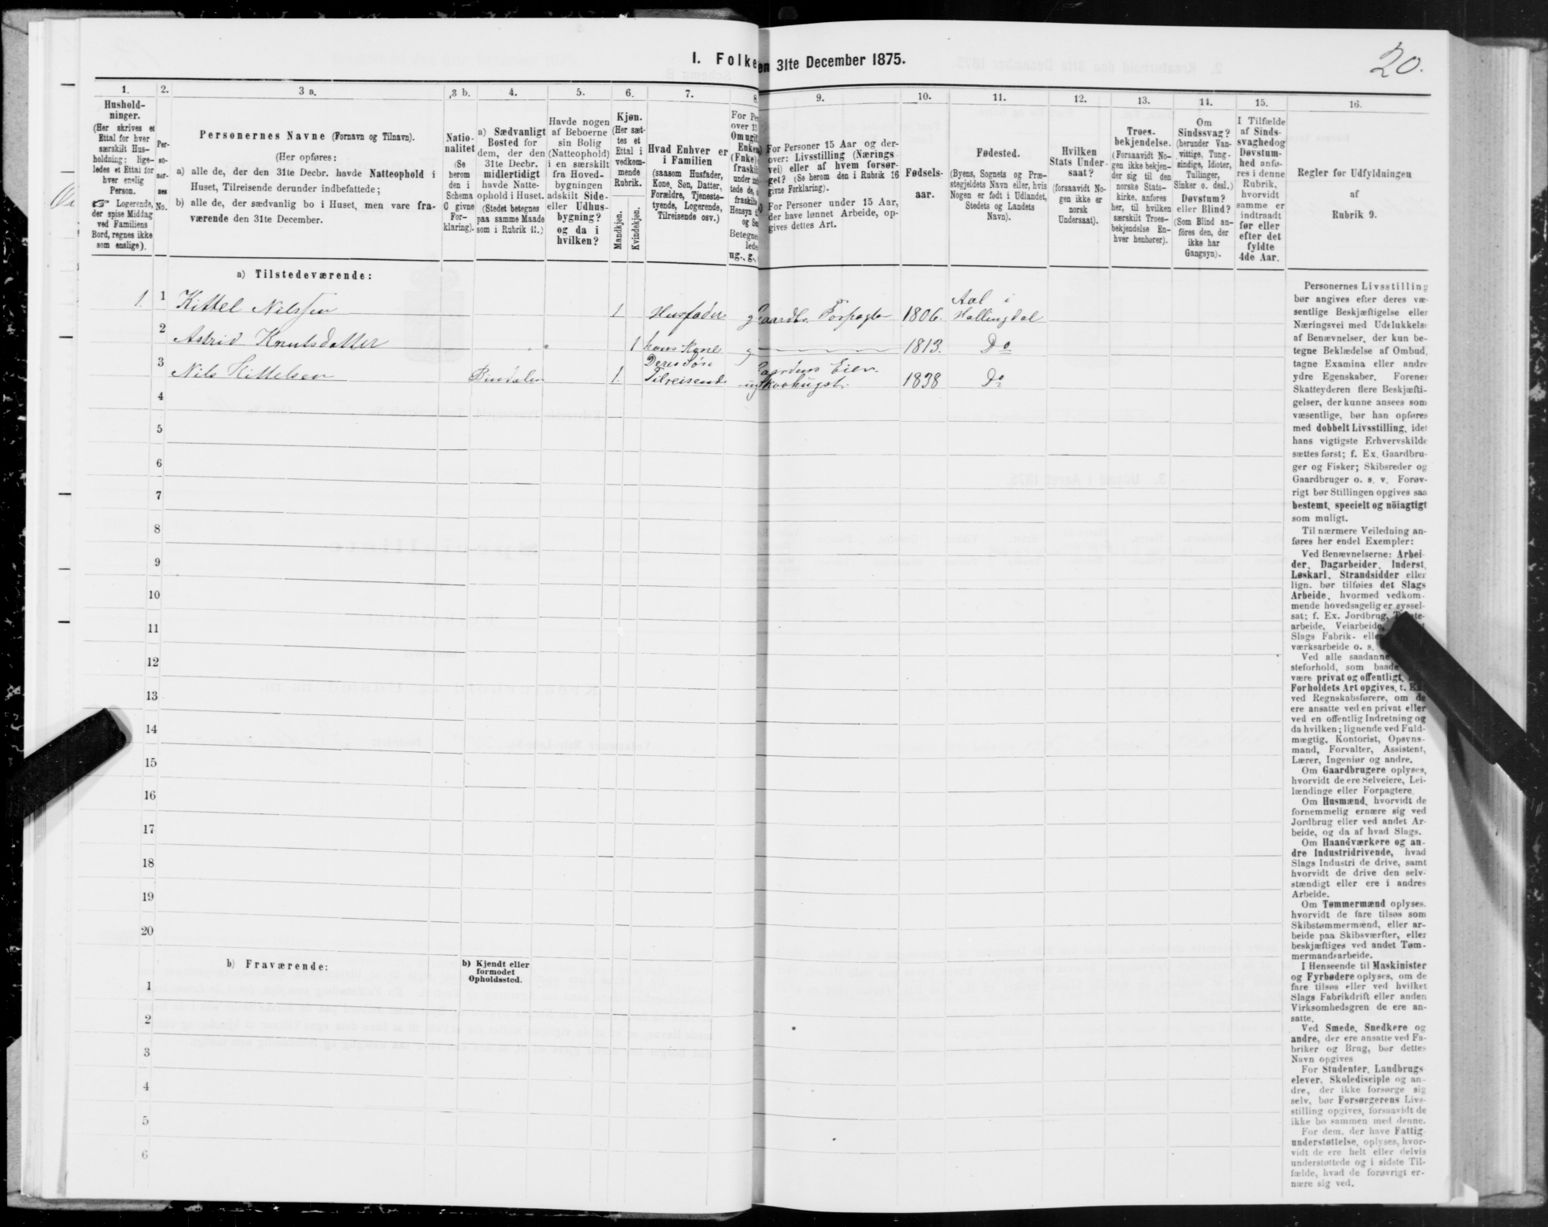 I. Folke
en 31te December 1875.
20.
1.
2.
3 a.
3 b.
4.
5.
6.
7.
8
9.
10.
11.
12.
13.
14.
15.
16.
Hushold-
ninger.
(Her skrives et
Ettal for hver
særskilt Hus-
holdning; lige-
ledes et Ettal for
hver enslig
Person.
☞ Logerende,
der spise Middag
ved Familiens
Bord, regnes ikke
som enslige).
Per-
so-
ner-
nes
No.
Personernes Navne (Fornavn og Tilnavn).
(Her opføres:
a) alle de, der den 31te Decbr. havde Natteophold i
Huset, Tilreisende derunder indbefattede;
b) alle de, der sædvanlig bo i Huset, men vare fra-
værende den 31te December.
Natio-
nalitet
(Se
herom
den i
Schema
givne
For-
klaring).
a) Sædvanligt
Bosted for
dem, der den
31te Decbr.
midlertidigt
havde Natte-
ophold i Huset.
(Stedet betegnes
paa samme Maade
som i Rubrik 11.)
Havde nogen
af Beboerne
sin Bolig
(Natteophold)
i en særskilt
fra Hoved-
bygningen
adskilt Side-
eller Udhus-
bygning?
og da i
hvilken?
Kjøn.
(Her sæt-
tes et
Ettal i
vedkom-
mende
Rubrik.
Mandkjøn.
Kvindekjøn.
Hvad Enhver er
i Familien
(saasom Husfader,
Kone, Søn, Datter,
Forældre, Tjeneste-
tyende, Logerende,
Tilreisende osv.)
For Personer 15 Aar og der-
over: Livsstilling (Nærings
vei) eller af hvem forsør-
get? (Se herom den i Rubrik 16
givne Forklaring).
For Personer under 15 Aar,
der have lønnet Arbeide, op-
gives dettes Art.
Fødsels-
aar.
Fødested.
(Byens, Sognets og Præ-
stegjeldets Navn eller, hvis
Nogen er født i Udlandet,
Stedets og Landets
Navn).
Hvilken
Stats Under-
saat?
(forsaavidt No-
gen ikke er
norsk
Undersaat).
Troes-
bekjendelse.
(Forsaavidt No-
gen ikke bekjen-
der sig til den
norske Stats-
kirke, anføres
her, til hvilken
særskilt Troes-
bekjendelse En-
hver henhører).
Om
Sindssvag?
(herunder Van-
vittige, Tung-
sindige, Idioter,
Tullinger,
Sinker o. desl.)
Døvstum?
eller Blind?
(Som Blind an-
føres den, der
ikke har
Gangsyn).
I Tilfælde
af Sinds-
svaghed og
Døvstum-
hed anfø-
res i denne
Rubrik,
hvorvidt
samme er
indtraadt
før eller
efter det
fyldte
4de Aar.
Regler for Udfyldningen
af
Rubrik 9.
a) Tilstedeværende:
1. 1 Kittel Nilssen 1 Husfader g Gaardbr. Forpagter 1806. Aal i Hallingdal
2 Astrid Knutsdatter 1 hans Kone g 1813. Do
3 Nils Kittelsen 1. Deres Søn Tilreisende ug 1838 Do
4
5
6
7
8
9
10
11
12
13
14
15
16
17
18
19
20
b) Fraværende:
b) Kjendt eller
formodet
Opholdssted.
1
2
3
4
5
6
Personernes Livsstilling
bør angives efter deres væ-
sentlige Beskjæftigelse eller
Næringsvei med Udelukkelse
af Benævnelser, der kun be-
tegne Beklædelse af Ombud,
tagne Examina eller andre
ydre Egenskaber. Forener
Skatteyderen flere Beskjæfti-
gelser, der kunne ansees som
væsentlige, bør han opføres
med dobbelt Livsstilling, idet
hans vigtigste Erhvervskilde
sættes først; f. Ex. Gaardbru-
ger og Fisker; Skibsreder og
Gaardbruger o. s. v. Forøv-
rigt bør Stillingen opgives saa
bestemt, specielt og nöiagtigt
som muligt.
Til nærmere Veiledning an-
føres her endel Exempler:
Ved Benævnelserne: Arbei-
der, Dagarbeider, Inderst,
Løskarl, Strandsidder eller
lign. bør tilføies det Slags
Arbeide, hvormed vedkom-
mende hovedsagelig er syssel-
sat; f. Ex. Jordbrug,
arbeide, Veiarbeide,
Slags Fabrik- eller
værksarbeide o. s.
Ved alle saadanne
steforhold, som baade
være privat og offentligt,
Forholdets Art opgives, t. Ex.
ved Regnskabsførere, om de
ere ansatte ved en privat eller
ved en offentlig Indretning og
da hvilken; lignende ved Fuld-
mægtig, Kontorist, Opsyns-
mand, Forvalter, Assistent,
Lærer, Ingeniør og andre.
Om Gaardbrugere oplyses,
hvorvidt de ere Selveiere, Lei-
lændinge eller Forpagtere.
Om Husmænd, hvorvidt de
fornemmelig ernære sig ved
Jordbrug eller ved andet Ar-
beide, og da af hvad Slags.
Om Haandværkere og an-
dre Industridrivende, hvad
Slags Industri de drive, samt
hvorvidt de drive den selv-
stændigt eller ere i andres
Arbeide.
Om Tømmermænd oplyses,
hvorvidt de fare tilsøs som
Skibstømmermænd, eller ar-
beide paa Skibsværfter, eller
beskjæftiges ved andet Tøm-
mermandsarbeide.
I Henseende til Maskinister
og Fyrbødere oplyses, om de
fare tilsøs eller ved hvilket
Slags Fabrikdrift eller anden
Virksomhedsgren de ere an-
satte.
Ved Smede, Snedkere og
andre, der ere ansatte ved Fa-
briker og Brug, bør dettes
Navn opgives
For Studenter, Landbrugs-
elever, Skoledisciple og an-
dre, der ikke forsørge sig
selv, bør Forsørgerens Livs-
stilling opgives, forsaavidt de
ikke bo sammen med denne.
For dem, der have Fattig-
understøttelse, oplyses, hvor-
vidt de ere helt eller delvis
understøttede og i sidste Til-
fælde, hvad de forøvrigt er-
nære sig ved.